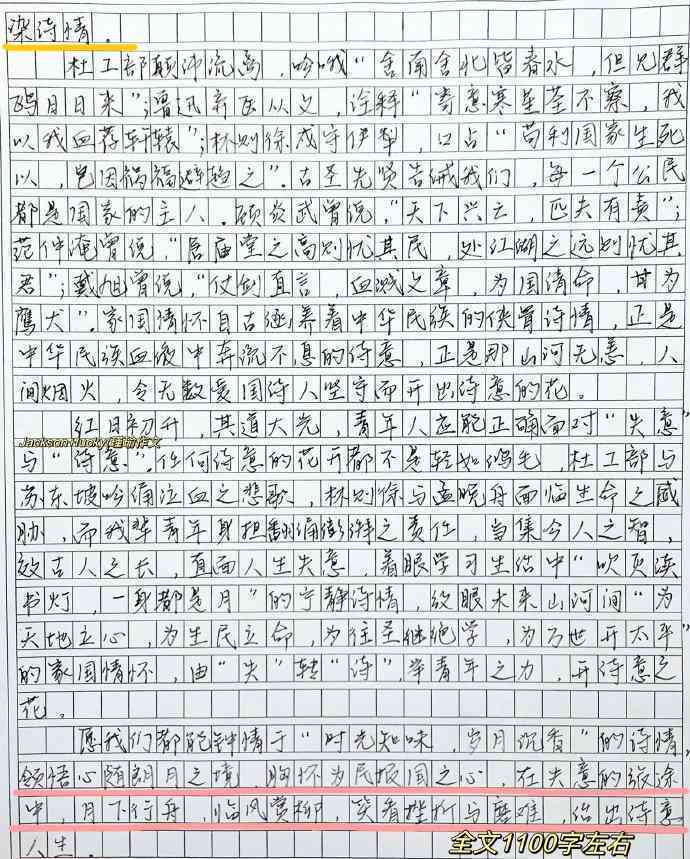 染诗情。
杜工部颠沛流离，吟哦“舍南舍北皆春水，但见群
鸥日日来”；鲁迅弃医从文，诠释“寄意寒星荃不察，我
以我血荐轩辕”；林则徐戍守伊犁，口占“苟利国家生死
以，岂因祸福避趋之”。古圣先贤告诫我们，每一个公民
都是国家的主人。顾炎武曾说，“天下兴亡，匹夫有责”；
范仲淹曾说，“居庙堂之高则忧其民，处江湖之远则忧其
君”；戴旭曾说，“仗剑直言，血溅文章，为国请命，甘为
鹰犬”。家国情怀自古涵养着中华民族的侠骨诗情，正是
中华民族血液中奔流不息的诗意，正是那山河无恙，人
间烟火，令无数爱国诗人坚守而开出诗意的花。
红日初升，其道大光，青年人应能正确面对“失意”
Jackson Hucky
与“诗意”。任何诗意的花开都不是轻如鸿毛，杜工部与
苏东坡吟诵泣血之悲歌，林则徐与孟晚舟面临生命之威
胁，而我辈青年身担翻涌澎湃之责任，当集今人之智，
效古人之长，直面人生失意，着眼学习生活中“吹灭读
书灯，一身都是月”的宁静诗情，放眼未来山河间“为
天地立心，为生民立命，为往圣继绝学，为万世开太平”
的家国情怀，由“失”转“诗”，举青年之力，开诗意之
花。
愿我们都能钟情于“时光知味，岁月沉香”的诗情，
领悟心随朗月之境，胸怀为民报国之心，在失意的旅途
中，月下行舟，临风赏柳，笑看挫折与磨难，活出诗意
人生。
全文1100字左右